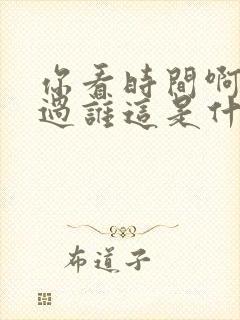 你看時間啊
過誰這是什
布道子